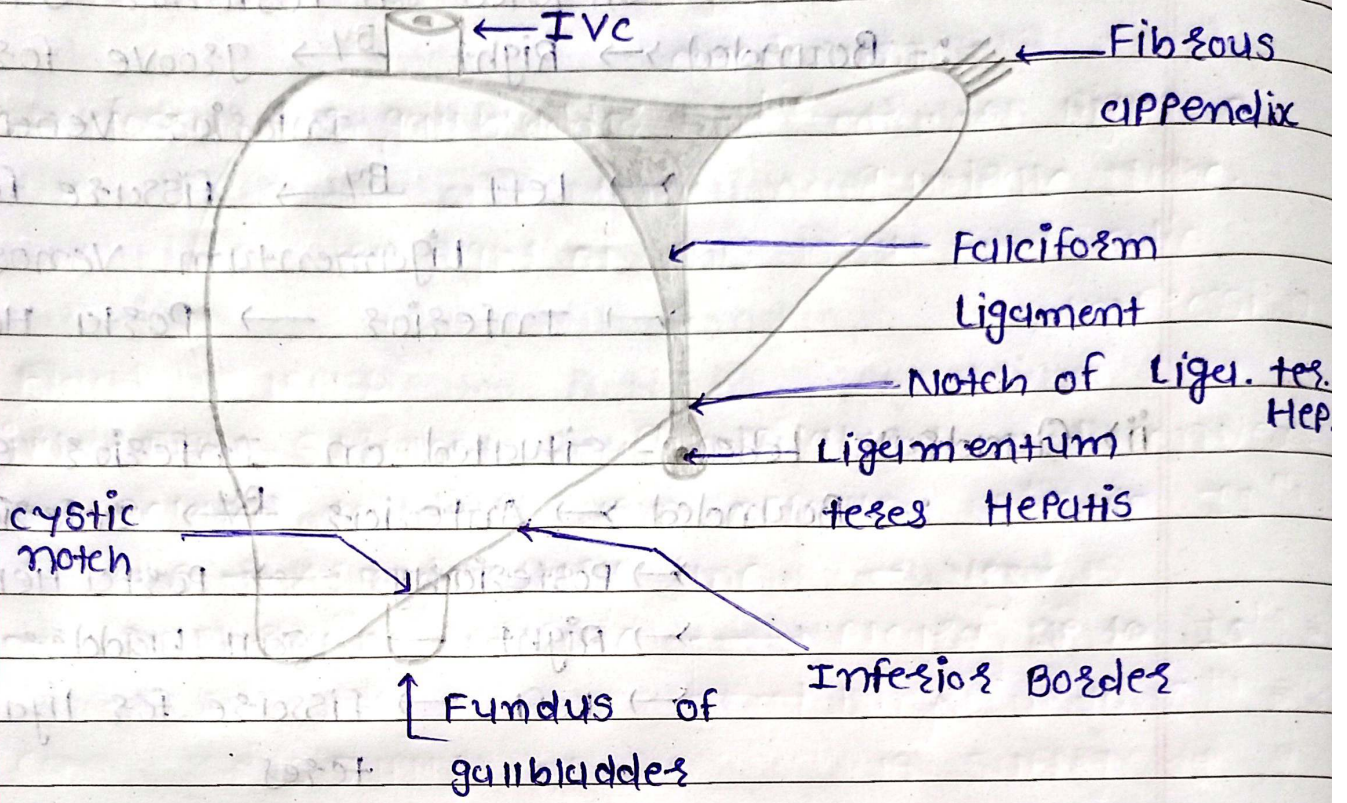 IVC
Fibrous
appendix
Falciform
Ligament
Notch of Liga. ter.
Hep.
Ligamentum
teres Hepatis
cystic
notch
Inferior Border
Fundus of
gallbladder